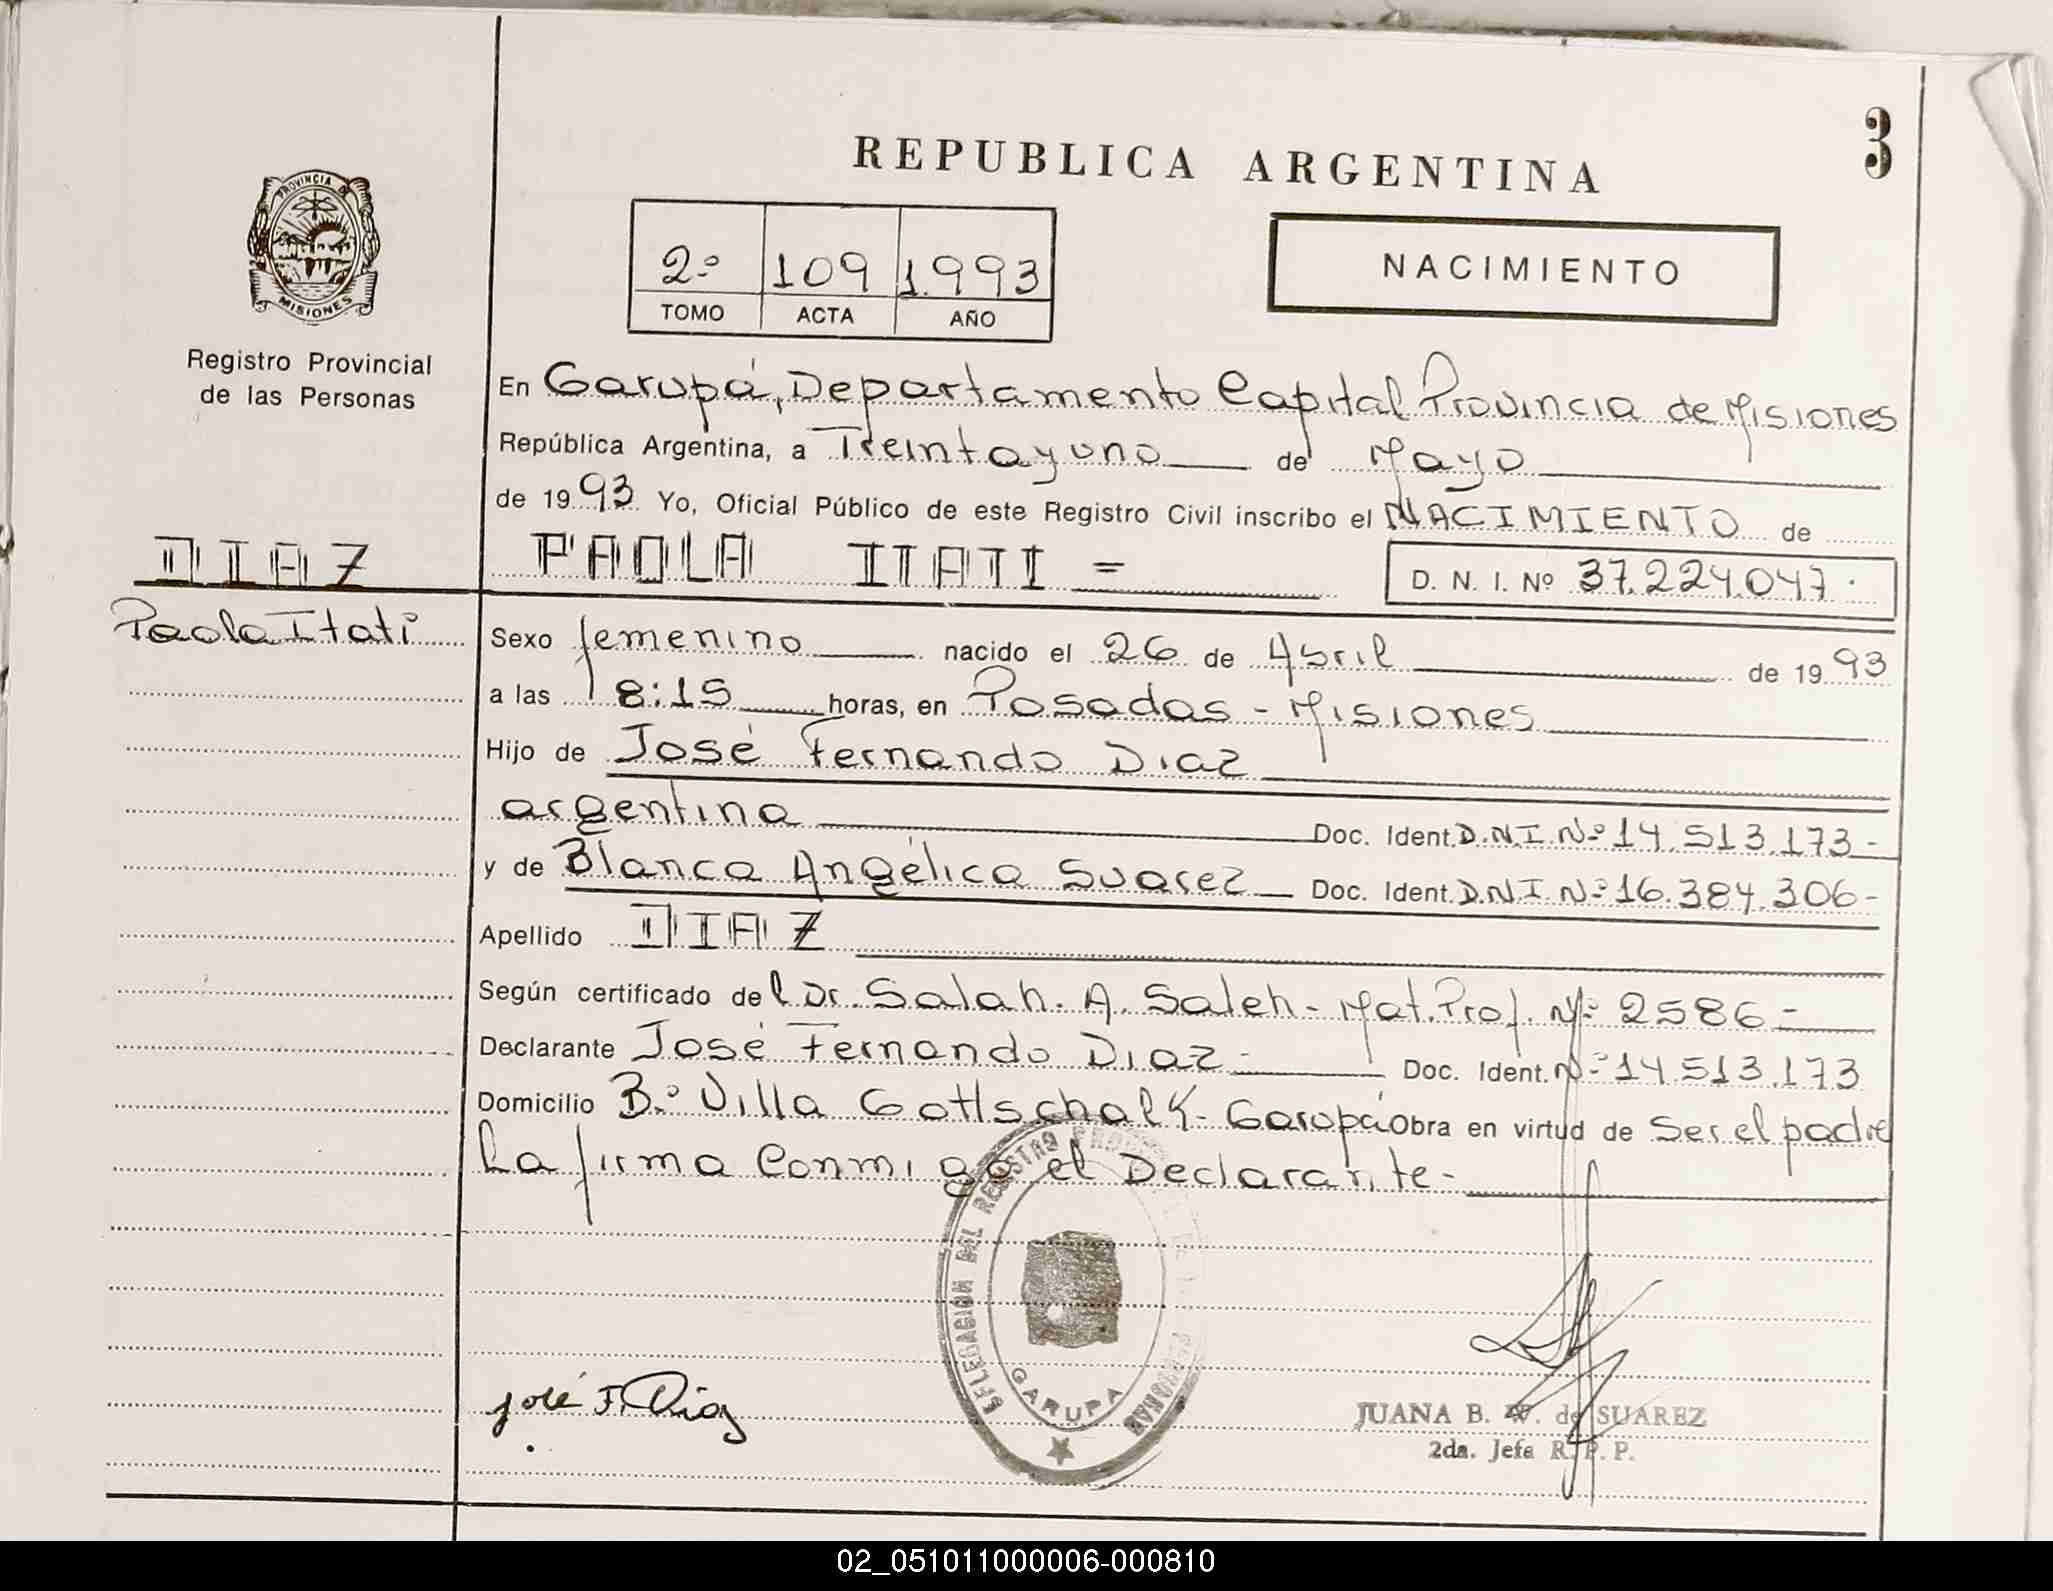 3
REPUBLICA ARGENTINA
PROVINCIA DE
MISIONES
2º 109 1.993
TOMO ACTA AÑO
NACIMIENTO
Registro Provincial
de las Personas
En Garupá, Departamento Capital Provincia de Misiones
República Argentina, a Treinta y uno de Mayo
de 1993 Yo, Oficial Público de este Registro Civil inscribo el NACIMIENTO de
DIAZ PAOLA ITATI = D. N. I. Nº 37.224.047.
Paola Itati
Sexo femenino nacido el 26 de Abril de 1993
a las 18:15 horas, en Posadas - Misiones
Hijo de José Fernando Diaz
argentina Doc. Ident. D.N.I. Nº 14.513.173-
y de Blanca Angélica Suarez Doc. Ident. D.N.I. Nº 16.384.306-
Apellido DIAZ
Según certificado del Dr. Salah. A. Saleh - Mat. Prof. Nº 2586-
Declarante José Fernando Diaz- Doc. Ident. Nº 14.513.173
Domicilio B.º Villa Gottschalk - Garupá Obra en virtud de Ser el padre
La firma Conmigo el Declarante-
DELEGACION DEL REGISTRO PROVINCIAL DE LAS PERSONAS
GARUPA
José F. Diaz
JUANA B. W. de SUAREZ
2da. Jefa R. P. P.
02_051011000006-000810